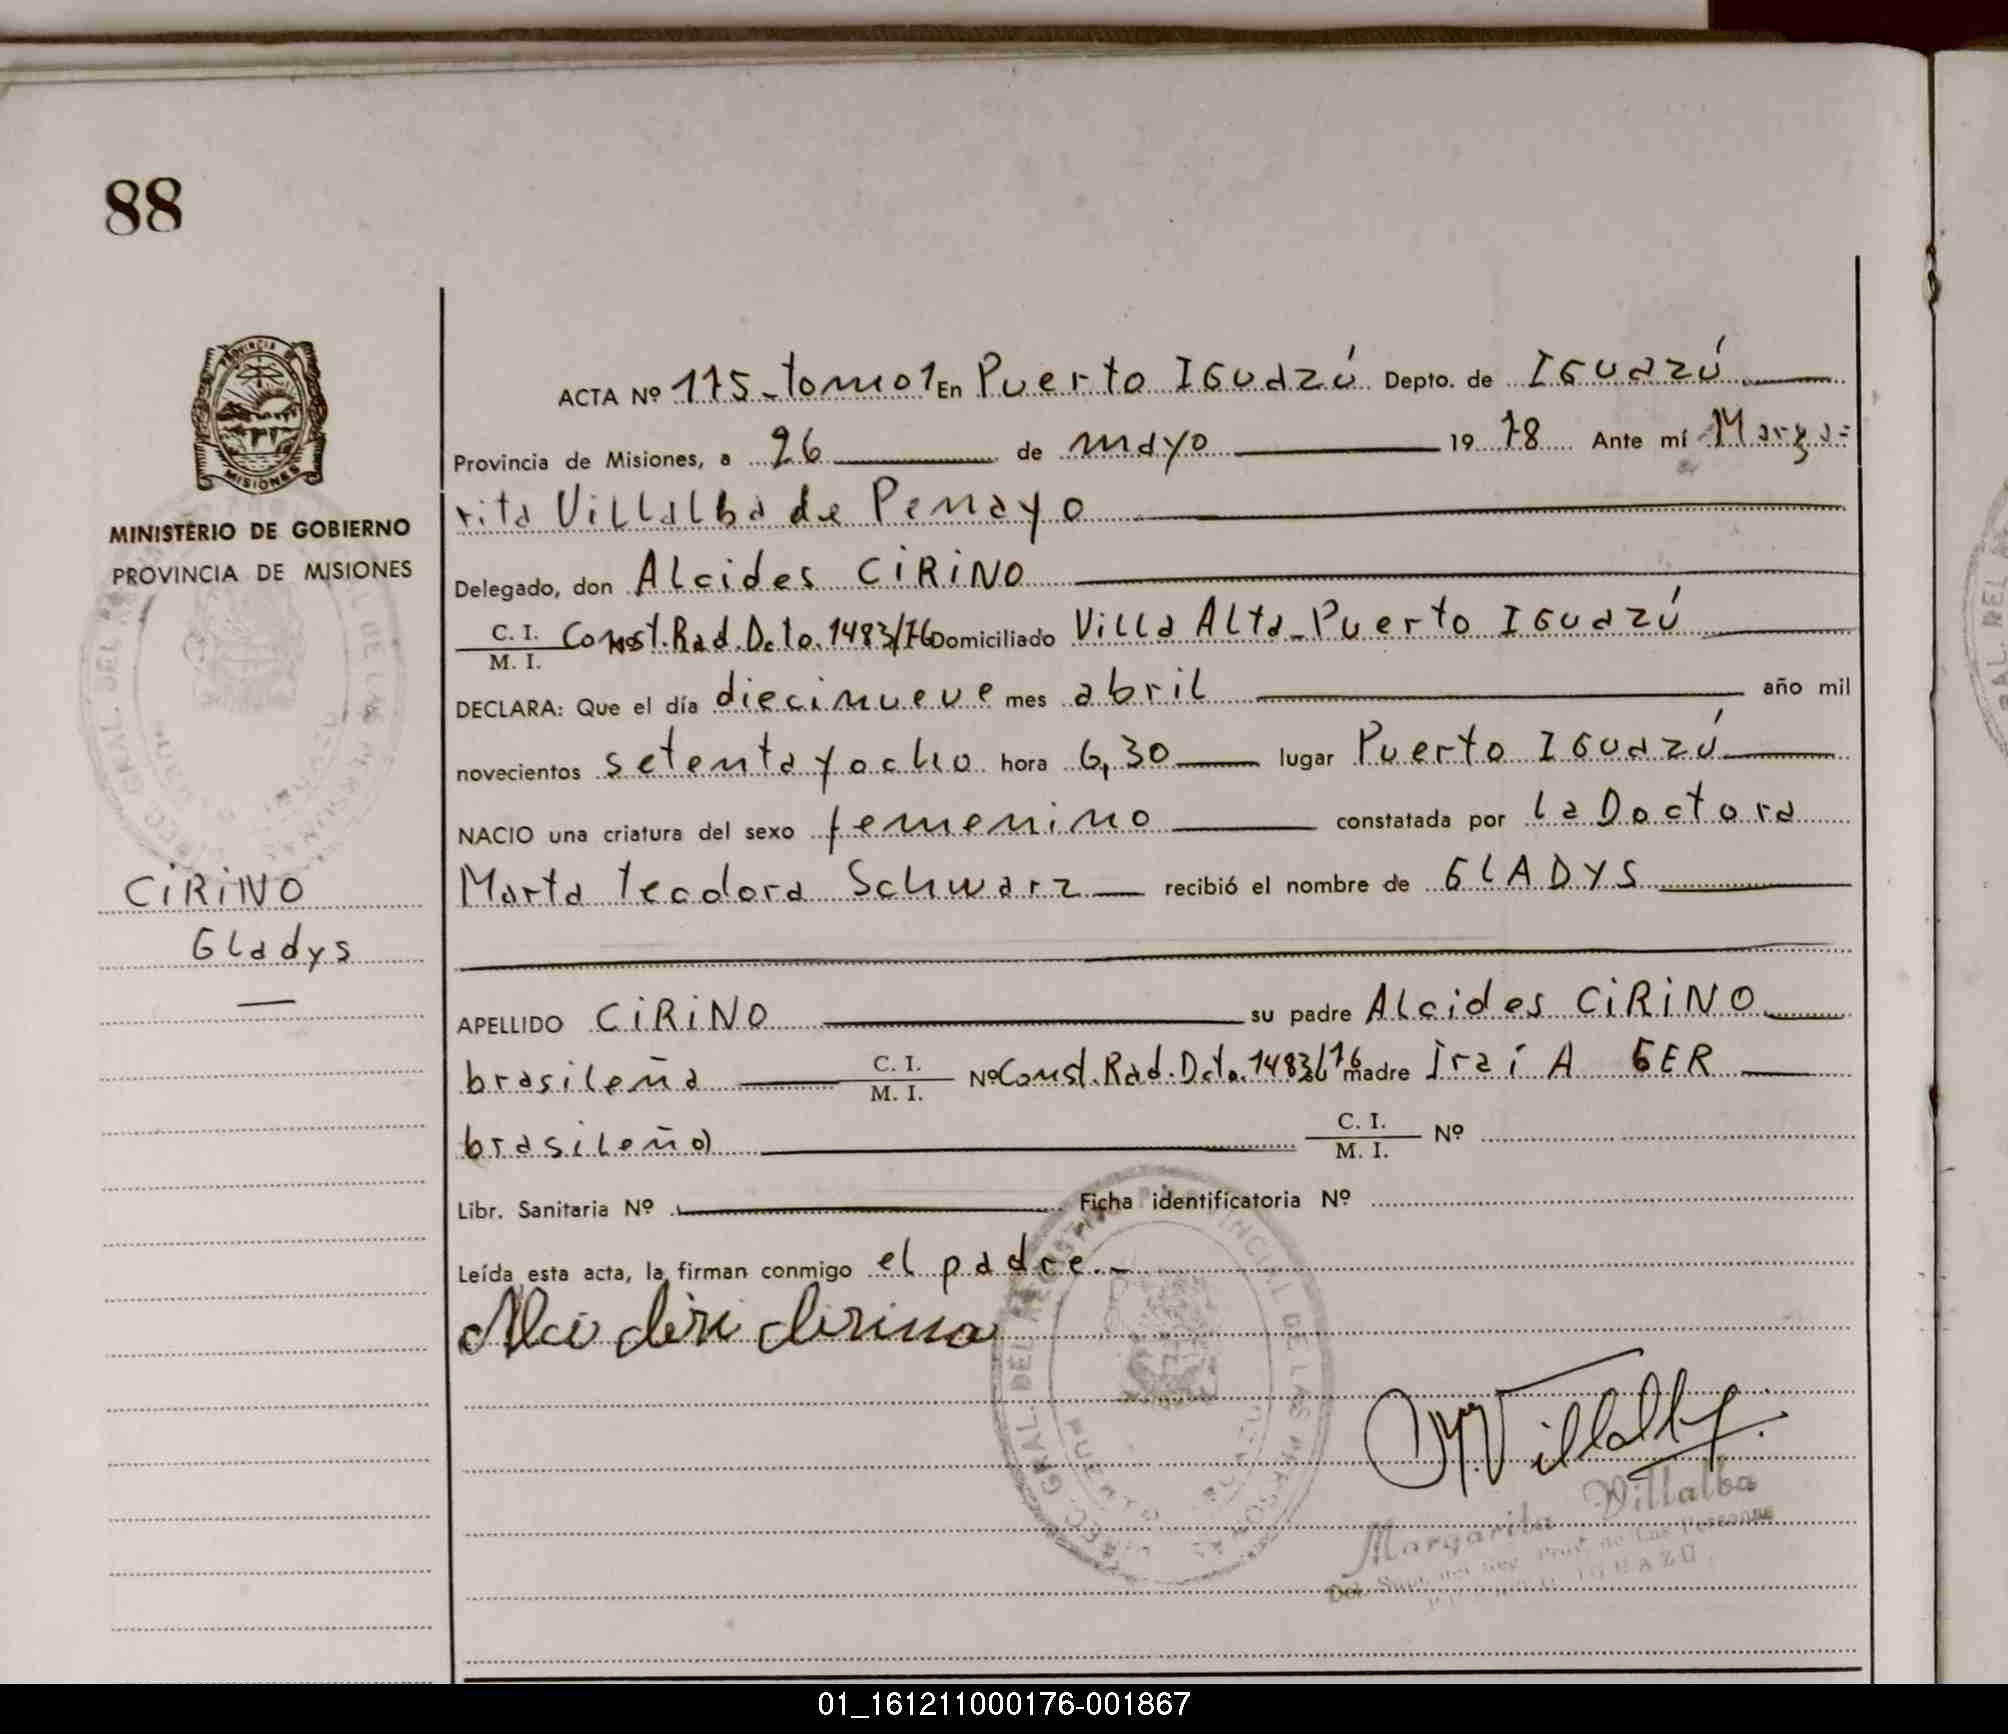 88
PROVINCIA DE
MISIONES
MINISTERIO DE GOBIERNO
PROVINCIA DE MISIONES
CIRINO
Gladys
ACTA Nº 175 - tomo 1 En Puerto IGuazú Depto. de IGuazú
Provincia de Misiones, a 26 de mayo 19 78 Ante mí Marga=
rita Villalba de Penayo
Delegado, don Alcides CIRINO
C. I. / M. I. Const. Rad. Dcto. 1483/76 Domiciliado Villa Alta - Puerto IGuazú
DECLARA: Que el día diecinueve mes abril año mil
novecientos setenta y ocho hora 6,30 lugar Puerto IGuazú
NACIO una criatura del sexo femenino constatada por la Doctora
Marta Teodora Schwarz recibió el nombre de GLADYS
APELLIDO CIRINO su padre Alcides CIRINO
brasileña C. I. / M. I. Nº Const. Rad. Dcto. 1483/76 madre Iraí A GER
brasileña C. I. / M. I. Nº
Libr. Sanitaria Nº Ficha identificatoria Nº
Leída esta acta, la firman conmigo el padre.-
Cirino
M. Villalba
Margarita Villalba
01_161211000176-001867